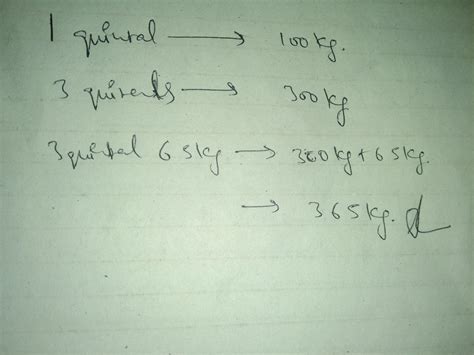 1 quintal → 100kg.
3 quintals → 300kg
3 quintal 65kg → 300kg + 65kg.
→ 365kg.